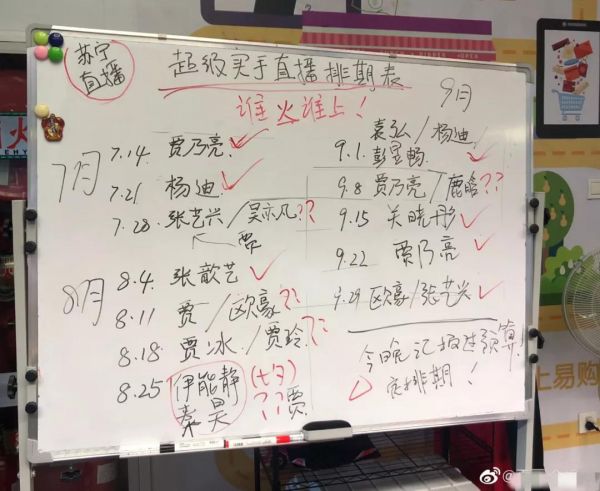 苏宁
直播
超级买手直播排期表
谁火谁上!
7月
7.14 贾乃亮
7.21 杨迪
7.28 张艺兴/吴亦凡??
票
8月
8.4 张歆艺
8.11 贾/欧豪??
8.18 贾冰/贾玲??
8.25 伊能静 (七夕)
秦昊 ??贾
9月
袁弘/杨迪
9.1 彭昱畅
9.8 贾乃亮/鹿晗??
9.15 关晓彤
9.22 贾乃亮
9.29 欧豪/张艺兴
今晚汇报过预算!
定排期!
上易购